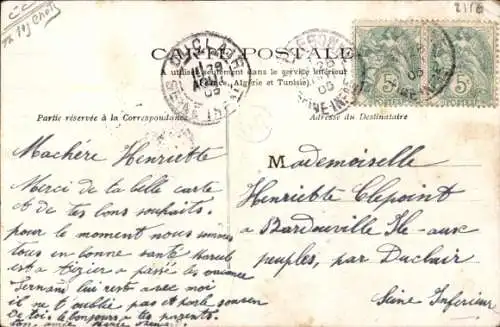 2118
CARTE POSTALE
A utiliser seulement dans le service intérieur
(France, Algérie et Tunisie).
Partie réservée à la Correspondance
Adresse du Destinataire
DUCLAIR
SEINE INF
5c
5c
Machére Henriette
Merci de la belle carte
et de tes bons souhaits.
pour le moment nous sommes
tous en bonne santé Marcel
est a a passé les vacance
Fernand lui rest avec moi
il ne t'oublié pas et parle souven
De toi. le bonjours a tes parents.
ton amie
Mademoiselle
Henriette Clepoint
a Bardouville Ile-aux
peuples, par Duclair
Seine Inferieur